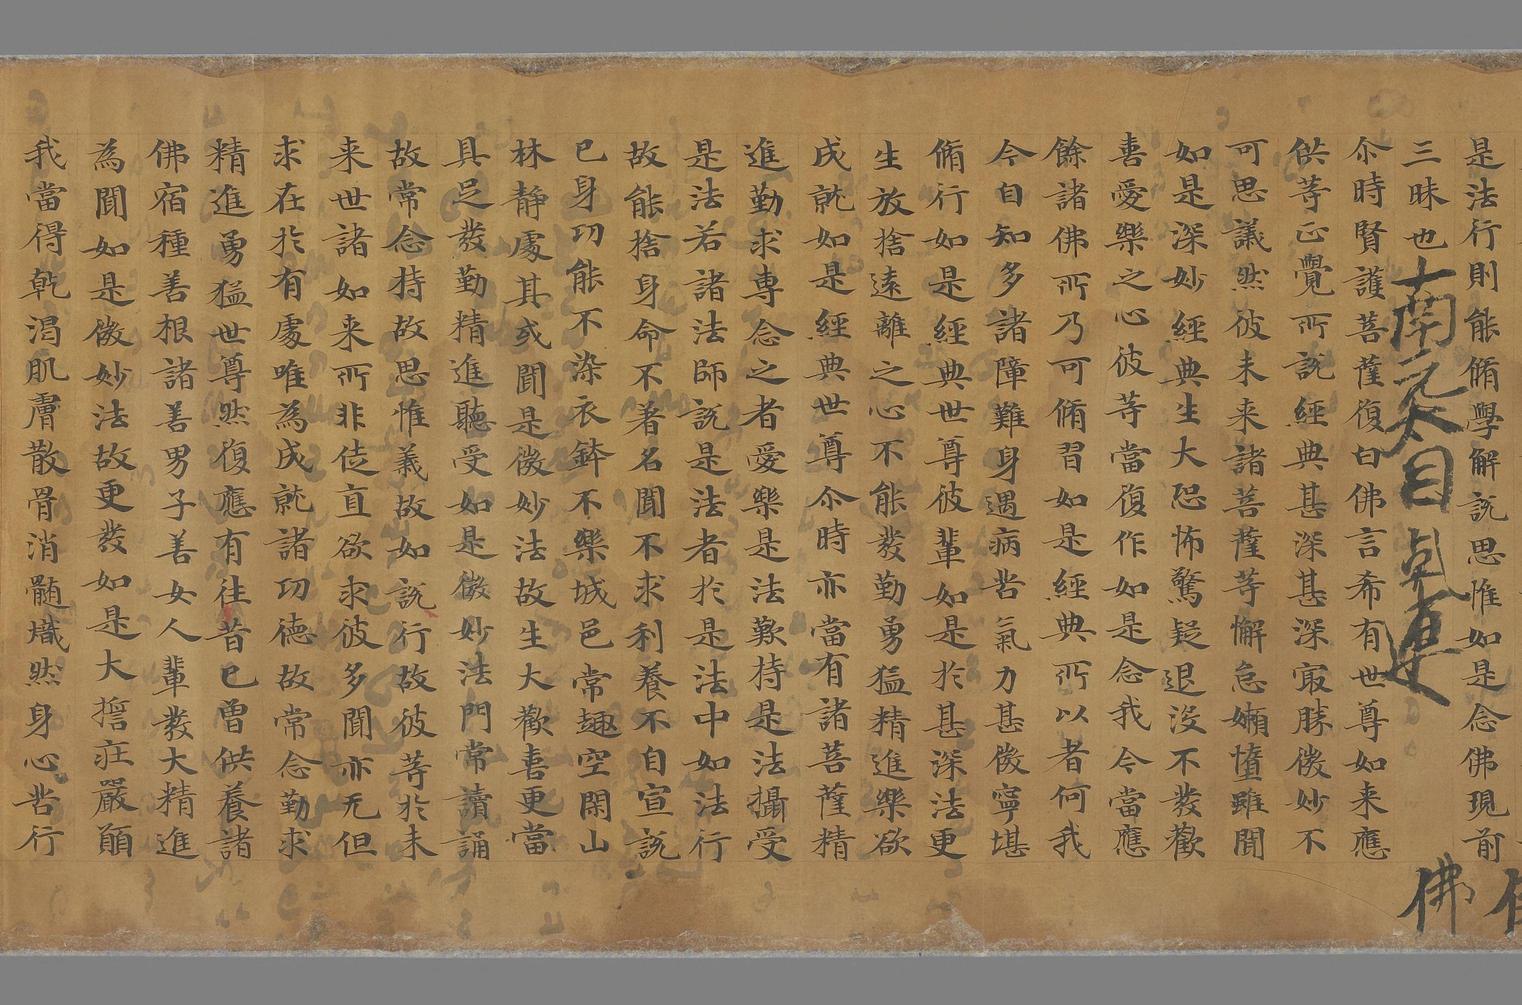 是法行則能脩學解説思惟如是念佛現前
三昧也
尒時賢護菩薩復白佛言希有世尊如来應
供等正覺所説經典甚深甚深㝡勝微妙不
可思議然彼未来諸菩薩等懈怠嬾惰雖聞
如是深妙經典生大恐怖驚疑退沒不發歡
喜愛樂之心彼等當復作如是念我今當應
餘諸佛所乃可脩習如是經典所以者何我
今自知多諸障難身遇病苦氣力甚微寧堪
脩行如是經典世尊彼輩如是於甚深法更
生放捨遠離之心不能發勤勇猛精進樂欲
成就如是經典世尊尒時亦當有諸菩薩精
進勤求專念之者愛樂是法歎持是法攝受
是法若諸法師説是法者於是法中如法行
故能捨身命不著名聞不求利養不自宣説
己身功能不染衣鉢不樂城邑常趣空閑山
林靜處其或聞是微妙法故生大歡喜更當
具足發勤精進聽受如是微妙法門常讀誦
故常念持故思惟義故如説行故彼等於未
来世諸如来所非徒直欲求彼多聞亦无但
求在於有處唯為成就諸功德故常念勤求
精進勇猛世尊然復應有往昔已曾供養諸
佛宿種善根諸善男子善女人輩發大精進
為聞如是微妙法故更發如是大擔莊嚴願
我當得乾渴肌膚散骨消髓熾然身心苦行
佛